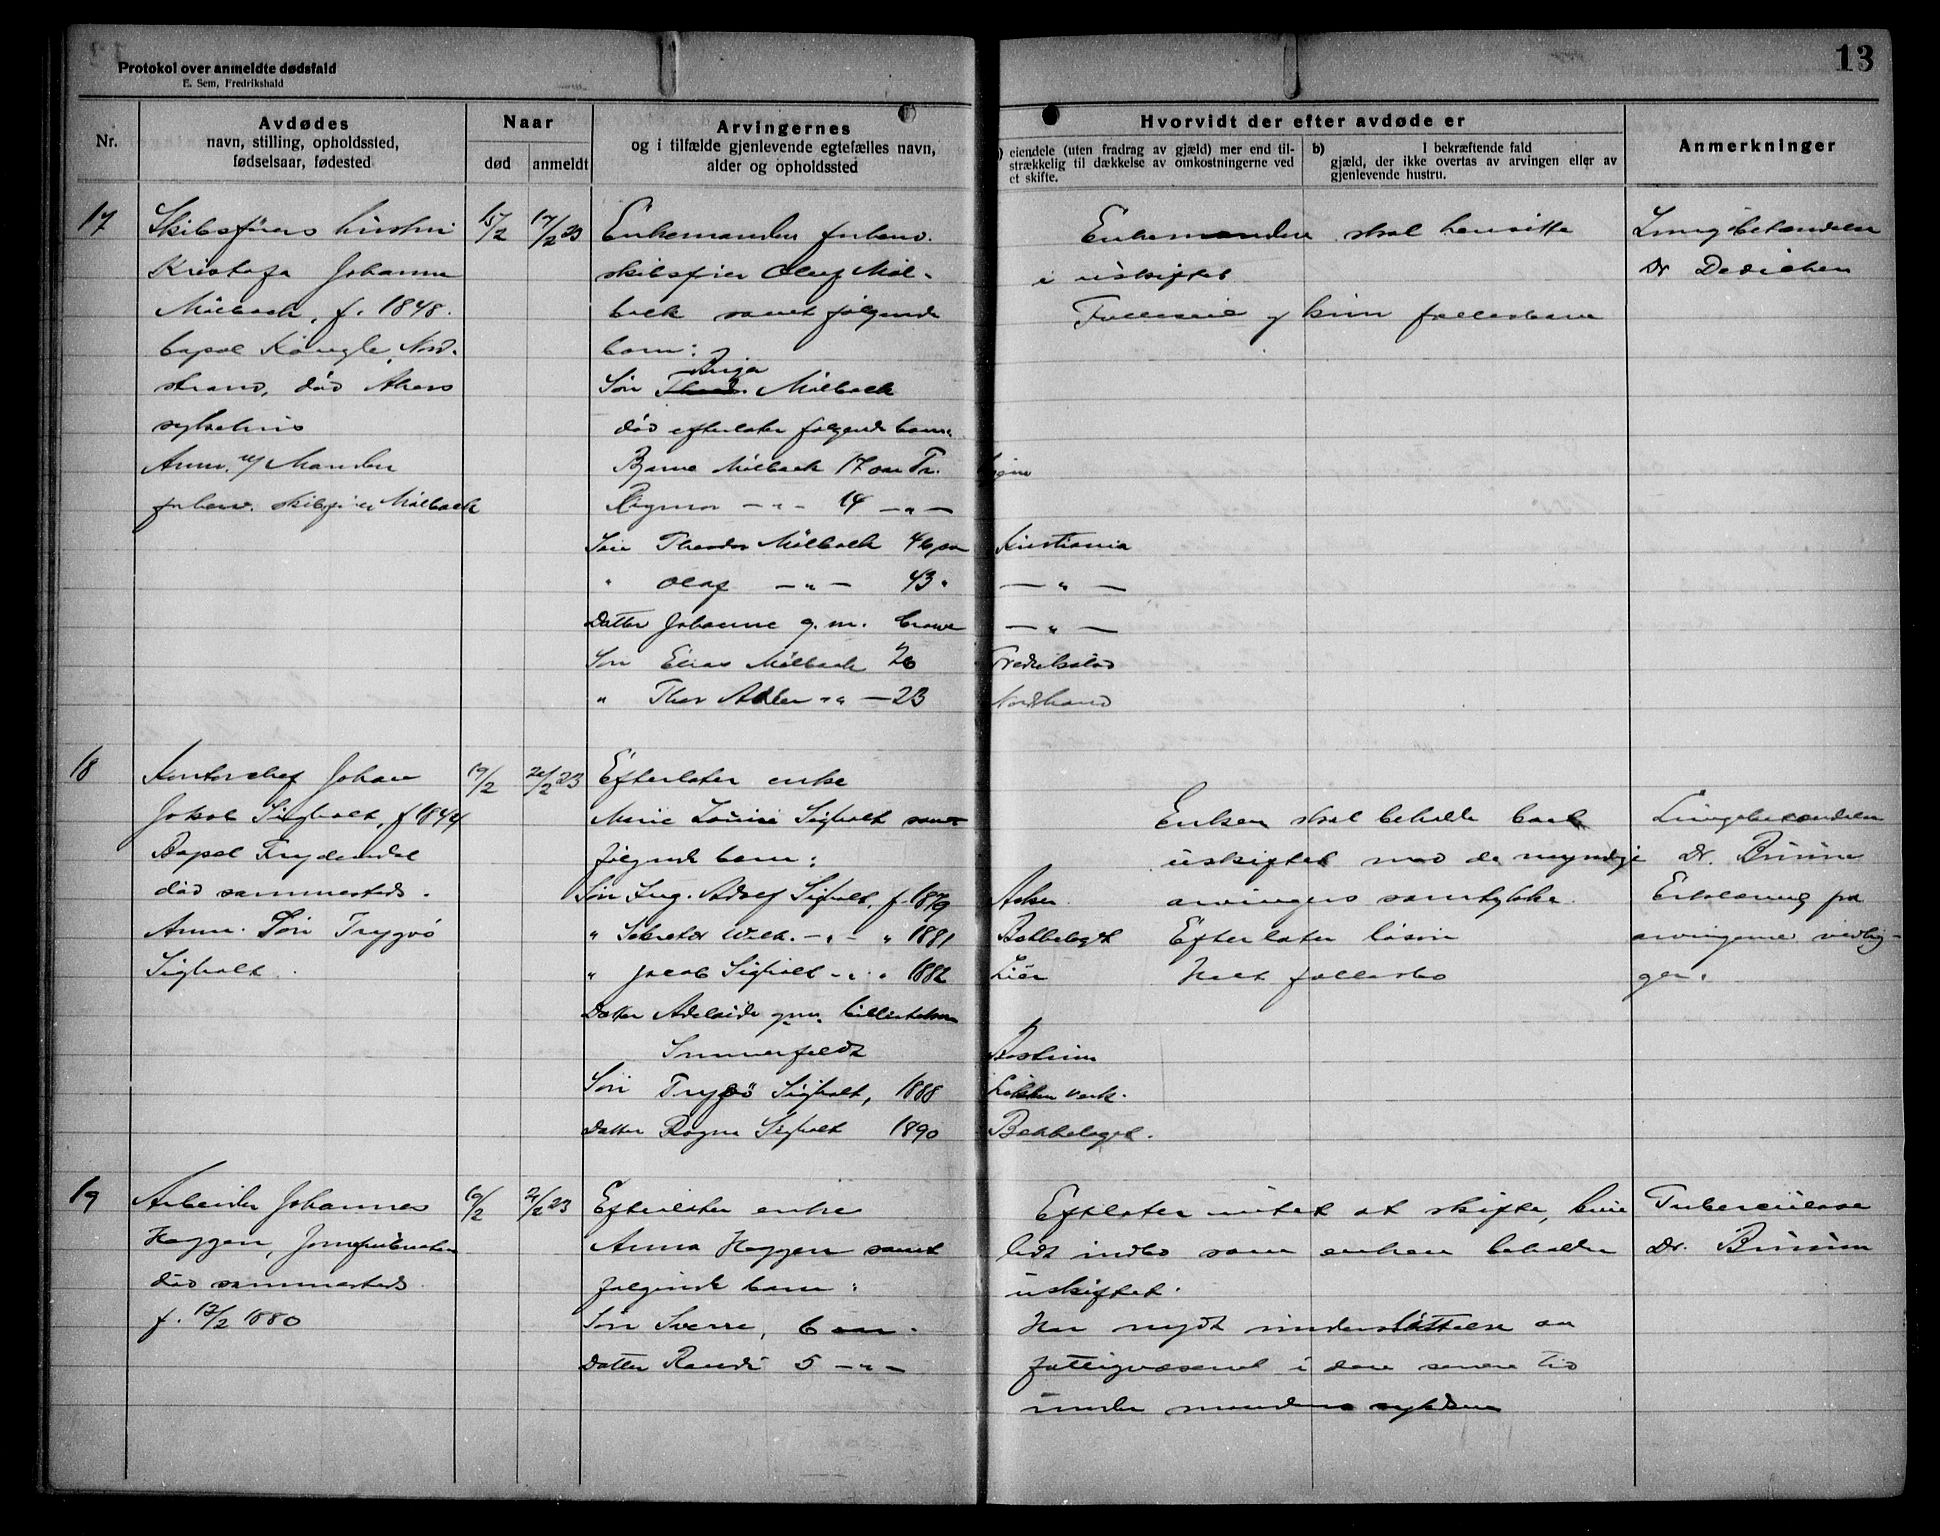 13
Protokol over anmeldte dødsfald
E. Sem, Fredrikshald
Nr.
Avdødes
navn, stilling, opholdssted,
fødselsaar, fødested
Naar
død
anmeldt
Arvingernes
og i tilfælde gjenlevende egtefælles navn,
alder og opholdssted
Hvorvidt der efter avdøde er
) eiendele (uten fradrag av gjæld) mer end til-
strækkelig til dækkelse av omkostningerne ved
et skifte.
b) I bekræftende fald
gjæld, der ikke overtas av arvingen eller av
gjenlevende hustru.
Anmerkninger
17
Skibsførers hustru
Johanne
Mølback, f. 1848.
Nord-
strand, død Akers
sykehus
Anm. v/ Manden
forhenv. skibsfører Mølback
15/2
17/2 23
Enkemanden forhenv.
skibsfører Oluf Møl-
back samt følgende
barn:
Søn Mølback
død efterlater følgende barn.
Bjarne Mølback 17 aar
Ragnar — " — 14 — " —
Søn Theodor Mølback 46 aar Kristiania
" Olaf — " — 43 " — " —
Datter Johanne g. m. — " —
Søn Elias Mølback 26 Fredrikstad
" Thor Adler " " — 23 Nordstrand
Enkemanden skal hensitte
i uskiftet
Fælleseie og kun fællesbarn
Lungebetændelse
Dr Dedichen
18
Kontorchef Johan
Jakob Sigholt, f 1844
Bopæl Frydendal
død sammesteds.
Anm. Søn Trygvø
Sigholt.
19/2
21/2 23
Efterlater enke
Marie Louise Sigholt samt
følgende barn:
Søn Ing. Adolf Sigholt, f. 1879 Asker
" Sekretær Wilh. — " — " 1881 Bækkelaget
" Jacob Sigholt — " " 1882 Lier
Datter Adelaide gm.
Sommerfeldt
Søn Trygvø Sigholt, 1888 Løkken verk.
Datter Ragna Sigholt 1890 Bækkelaget.
Enken skal beholde boet
uskiftet med de myndige
arvingers samtykke.
Efterlater løsøre
Helt fællesbo
Lungebetændelse
Dr. Bruun
Erklæring fra
arvingerne vedlig-
ger.
19
Arbeider Johannes
Haggen,
død sammesteds
f. 13/2 1880
19/2
21/2 23
Efterlater enke
Anna Haggen samt
følgende barn:
Søn Sverre, 6 aar.
Datter Randi 5 — " —
Efterlater intet at skifte, kun
lidt indbo som enken beholder
uskiftet.
Har nydt understøttelse av
fattigvæsenet i den senere tid
under mandens sykdom
Tuberculose
Dr. Bruun